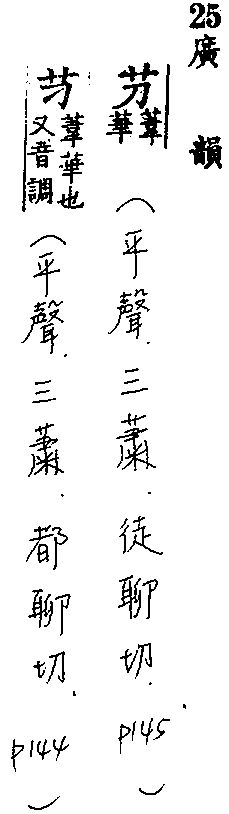 25廣韻
芀葦華(平聲.三蕭.徒聊切.p145.)
芀葦華也又音調(平聲.三蕭.都聊切.p144)